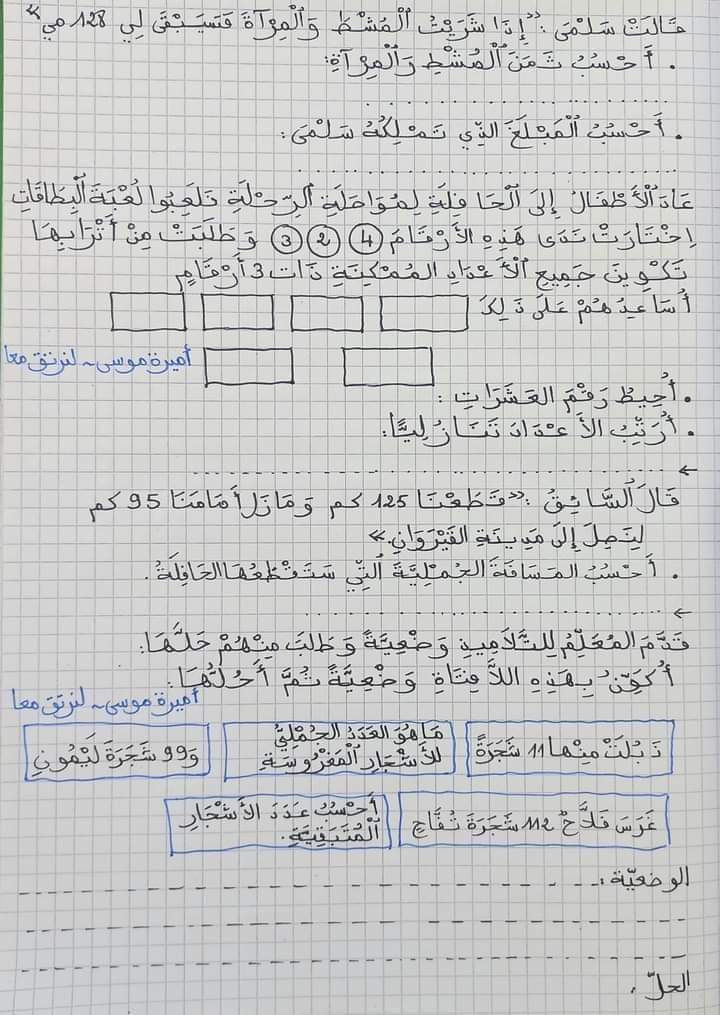 قَالَتْ سَلْمَى : «إِذَا شَرَيْتُ ٱلْمُشْطَ وَٱلْمِرْآةَ فَسَيَبْقَى لِي 128 مي»
. أَحْسُبُ ثَمَنَ ٱلْمُشْطِ وَٱلْمِرْآةِ:
. أَحْسُبُ ٱلْمَبْلَغَ الذِّي تَمْلِكُهُ سَلْمَى :
عَادَ ٱلْأَطْفَالُ إِلَى ٱلْحَافِلَةِ لِمُوَاصَلَةِ ٱلرِّحْلَةِ فَلَعِبُوا لُعْبَةَ ٱلْبِطَاقَاتِ
اِخْتَارَتْ نَدَى هَذِهِ الأَرْقَامَ 4 2 3 وَطَلَبَتْ مِنْ أَتْرَابِهَا
تَكْوِينَ جَمِيعِ ٱلْأَعْدَادِ المُمْكِنَةِ ذَات 3 أَرْقَامٍ
أُسَاعِدُهُمْ عَلَى ذَلِكَ
أميرة موسى ~ لنرتق معا
. أُحِيطُ رَقْمَ العَشَرَاتِ :
. أُرَتِّبُ الأَعْدَادَ تَنَازُلِيًّا:
قَالَ ٱلسَّائِقُ : «قَطَعْنَا 125 كم وَمَازَلَ أَمَامَنَا 95 كم
لِنَصِلَ إِلَى مَدِينَةِ القَيْرَوَانِ.»
. أَحْسُبُ المَسَافَةَ الجُمْلِيَّةَ ٱلَّتِي سَتَقْطَعُهَا الحَافِلَةُ.
قَدَّمَ المُعَلِّمُ لِلتَّلَامِيذِ وَضْعِيَّةً وَطَلَبَ مِنْهُمْ حَلَّهَا:
أُكَوِّنُ بِهَذِهِ اللاَّفِتَاةِ وَضْعِيَّةً ثُمَّ أَحُلُّهَا:
أميرة موسى ~ لنرتق معا
ذَبُلَتْ مِنْها 11 شَجَرَةً
مَا هُوَ العَدَدُ الجُمْلِيُّ
لِلأَشْجَارِ ٱلْمَغْرُوسَةِ
وَ 99 شَجَرَةَ لَيْمُونٍ
غَرَسَ فَلاَّحٌ 112 شَجَرَةَ تُفَّاحٍ
أَحْسُبُ عَدَدَ الأَشْجَارِ
ٱلْمُتَبَقِيَّةِ.
الوضعيّة :
الحلّ :